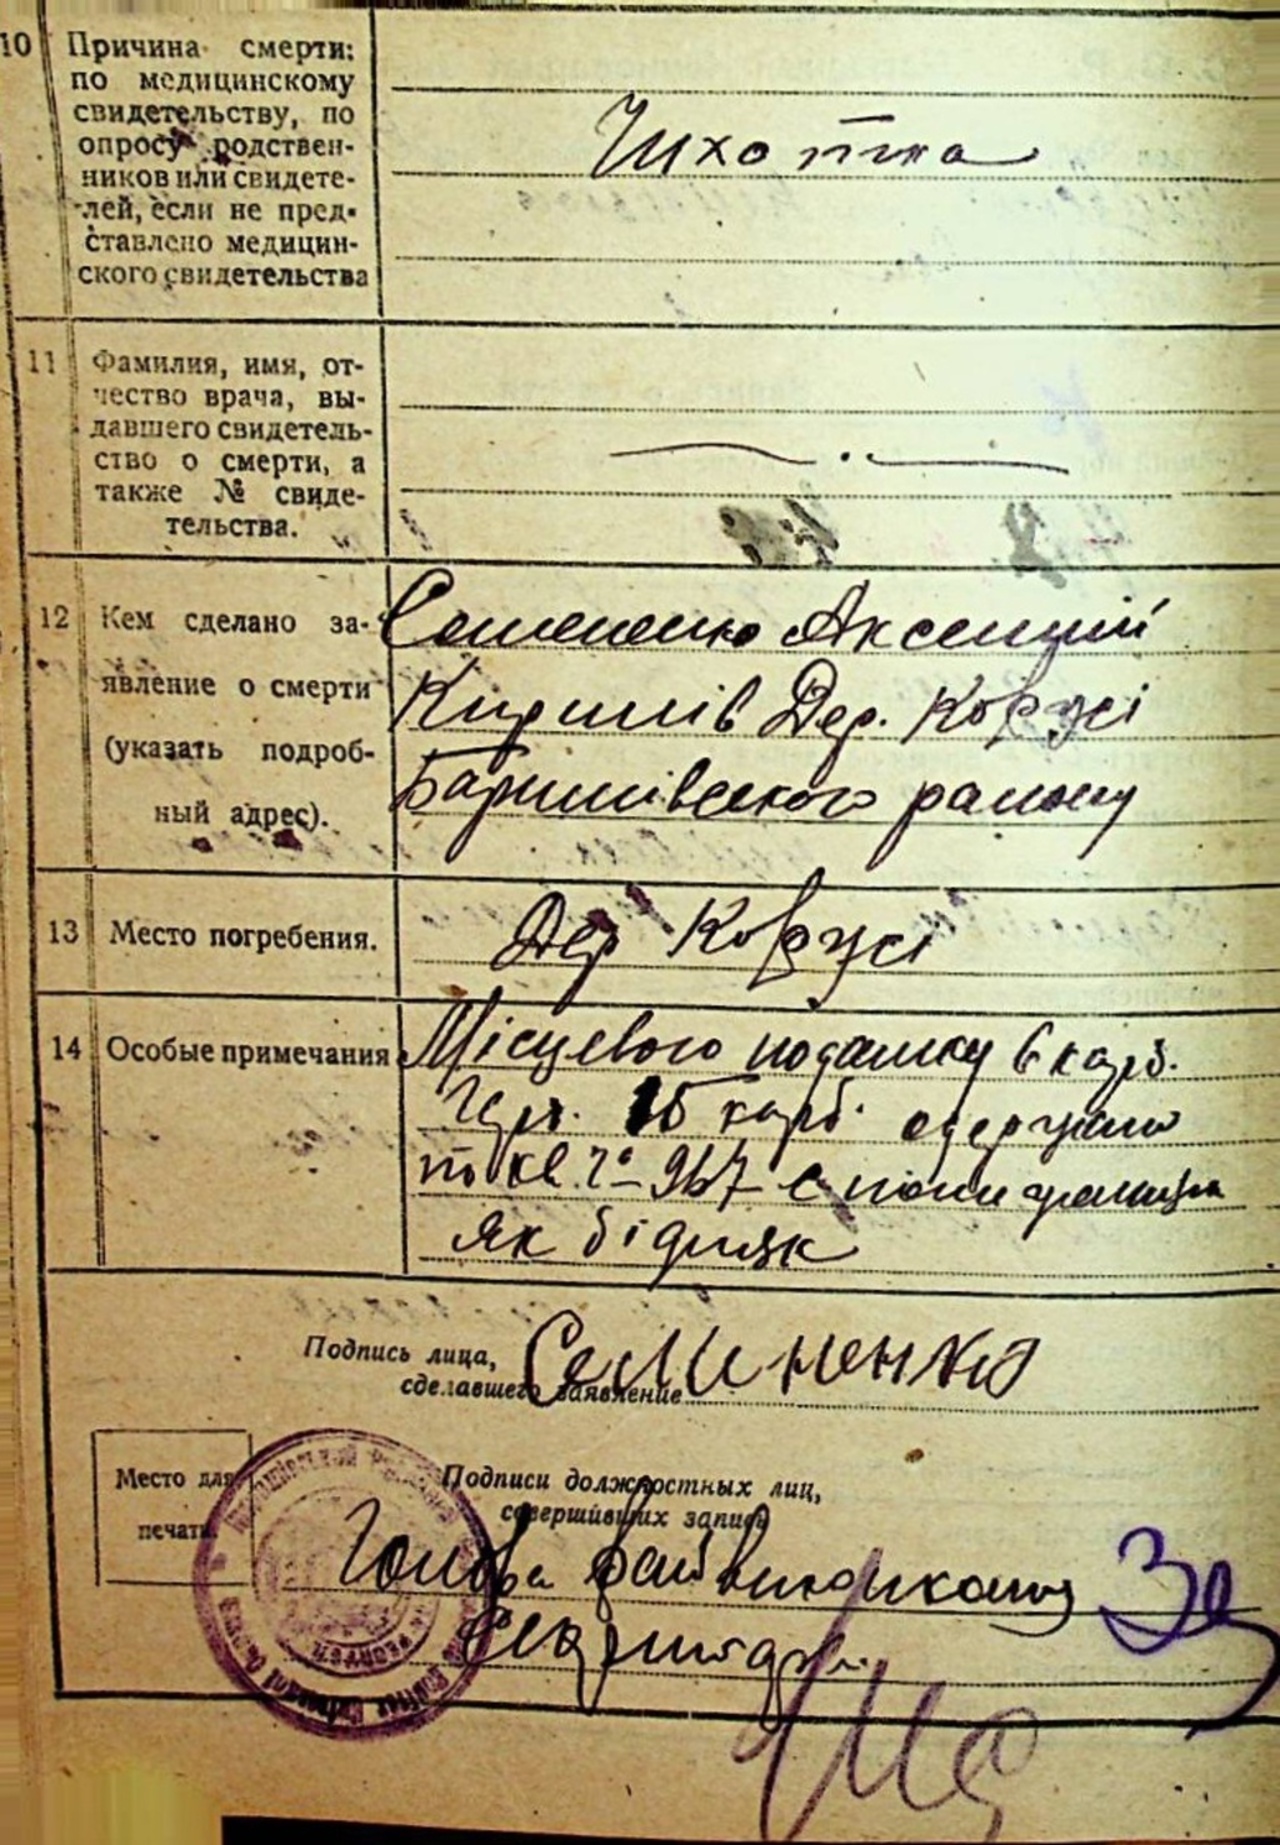 10 Причина смерти:
по медицинскому
свидетельству, по
опросу родствен-
ников или свидете-
лей, если не пред-
ставлено медицин-
ского свидетельства
Чихотка
11 Фамилия, имя, от-
чество врача, вы-
давшего свидетель-
ство о смерти, а
также № свиде-
тельства.
12 Кем сделано за-
явление о смерти
(указать подроб-
ный адрес).
Семененко Аксентий
Кирилів Дер. Коржі
Баришівського району
13 Место погребения.
Дер Коржі
14 Особые примечания
Місцевого податку 6 карб.
15 карб. одержано
по кв. 967 с
як бідняк
Подпись лица,
сделавшего заявление
Семиненко
Место для
печати.
Подписи должностных лиц,
совершивших запись
Голова Райвиконкому
Секретарь